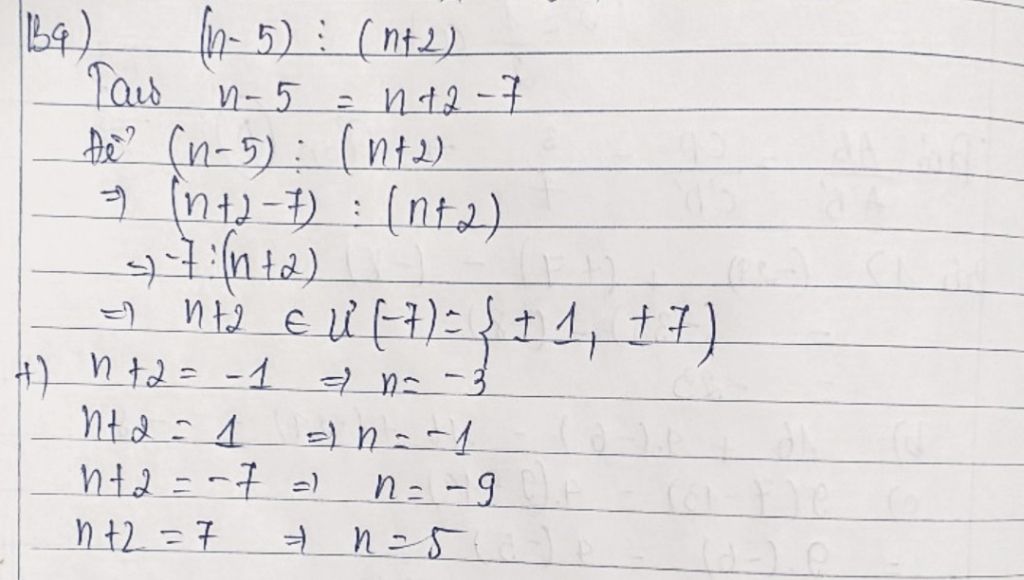 B4) (n-5) ⋮ (n+2)
n-5 = n+2-7
Để (n-5) ⋮ (n+2)
⇒ (n+2-7) ⋮ (n+2)
⇒ -7 ⋮ (n+2)
⇒ n+2 ∈ Ư (-7) = { ±1, ±7 )
+) n+2 = -1 ⇒ n = -3
n+2 = 1 ⇒ n = -1
n+2 = -7 ⇒ n = -9
n+2 = 7 ⇒ n = 5